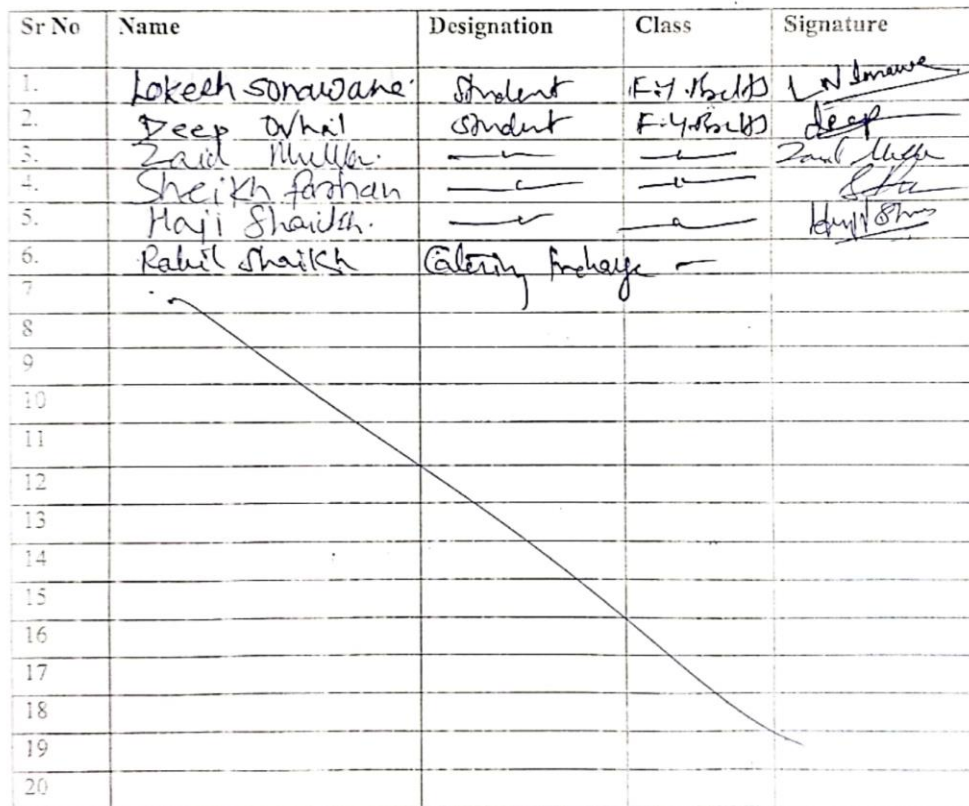 Sr No Name Designation Class Signature
1. Lokesh sonawane. Student F.Y.
2. Deep Ovhal student F.Y. deep
3. Zaid Mulla. Zaid Mulla
4. Sheikh farhan
5. Haji Shaikh.
6. Rahil Shaikh Catering Incharge -
7
8
9
10
11
12
13
14
15
16
17
18
19
20